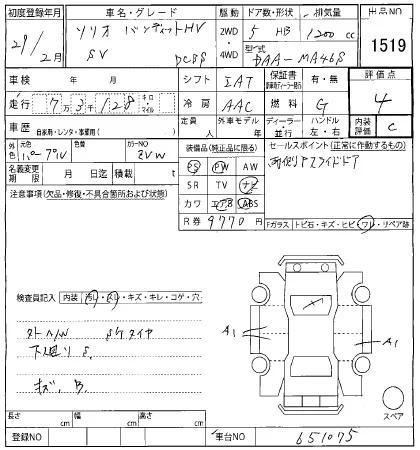 初度登録年月 車名・グレード 駆動 ドア数・形状 排気量 出品NO
29/2月 ソリオ バンディットHV 2WD・4WD 5 HB 1200cc 1519
SV DCBS 型式 DAA-MA46S
車検 年 月 シフト IAT 保証書 有・無 評価点
走行 7万3千128 キロ・マイル 冷房 AAC 燃料 G 4
車歴 自家用・レンタ・事業用( ) 定員 人 外車モデル 年 ディーラー・並行 ハンドル 左・右 内装評価 C
外色 元色 パープル 色替 カラーNO ZVW 装備品(純正品に限る) セールスポイント(正常に作動するもの)
名義変更期限 月 日迄 積載 t PS PW AW
注意事項(欠品・修復・不具合箇所および状態) SR TV ナビ
カワ エアB ABS
R券 9770円 Fガラス トビ石・キズ・ヒビ・ワレ・リペア跡
検査員記入 内装 汚レ・スレ・キズ・キレ・コゲ・穴
A1 A1
下廻りS.
キズ、B.
スペア
長さ cm 幅 cm 高さ cm
登録NO 車台NO 651075